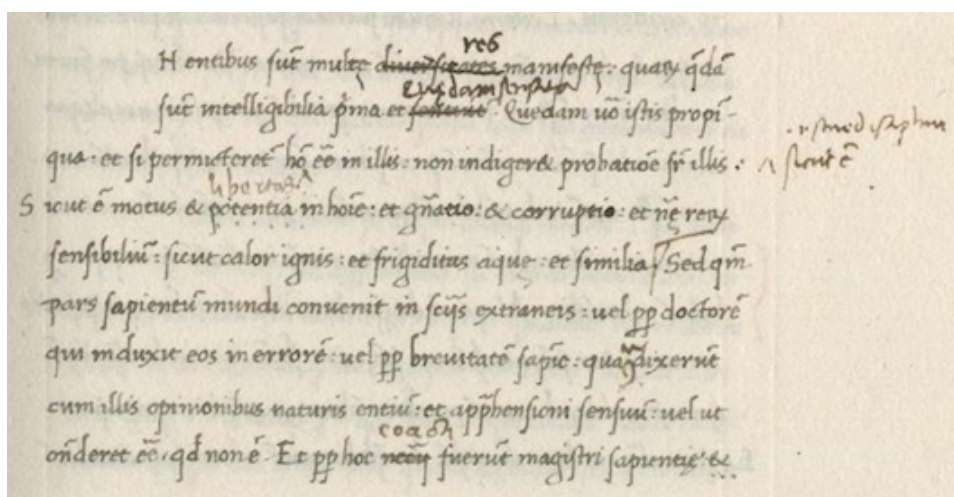 res
N entibus sūt multę diuersitates manifestę : quarꝝ q̄dā
eiusdam
sūt intelligibilia p̄ma et. Quedam uō istis propi-
qua : et si permicteret hō eē in illis : non indigeret probatiōe sr̄ illis :
sicut ē
libertas
S icut ē motus & potentia in hoīe : et gn̄atio : & corruptio : et nē rerꝝ
sensibiliū : sicut calor ignis : et frigiditas aque : et similia / Sed qm̄
pars sapientū mundi convenit in sciis extraneis : uel pp̄ doctorē
qui induxit eos in errorē : uel pp̄ brevitatē sapię : dixerūt
cum illis opinionibus naturis entiū : et app̄hensioni sensuū : uel ut
coacti
on̄deret eē, qd̄ non ē. Et pp̄ hoc fuerūt magistri sapientię &